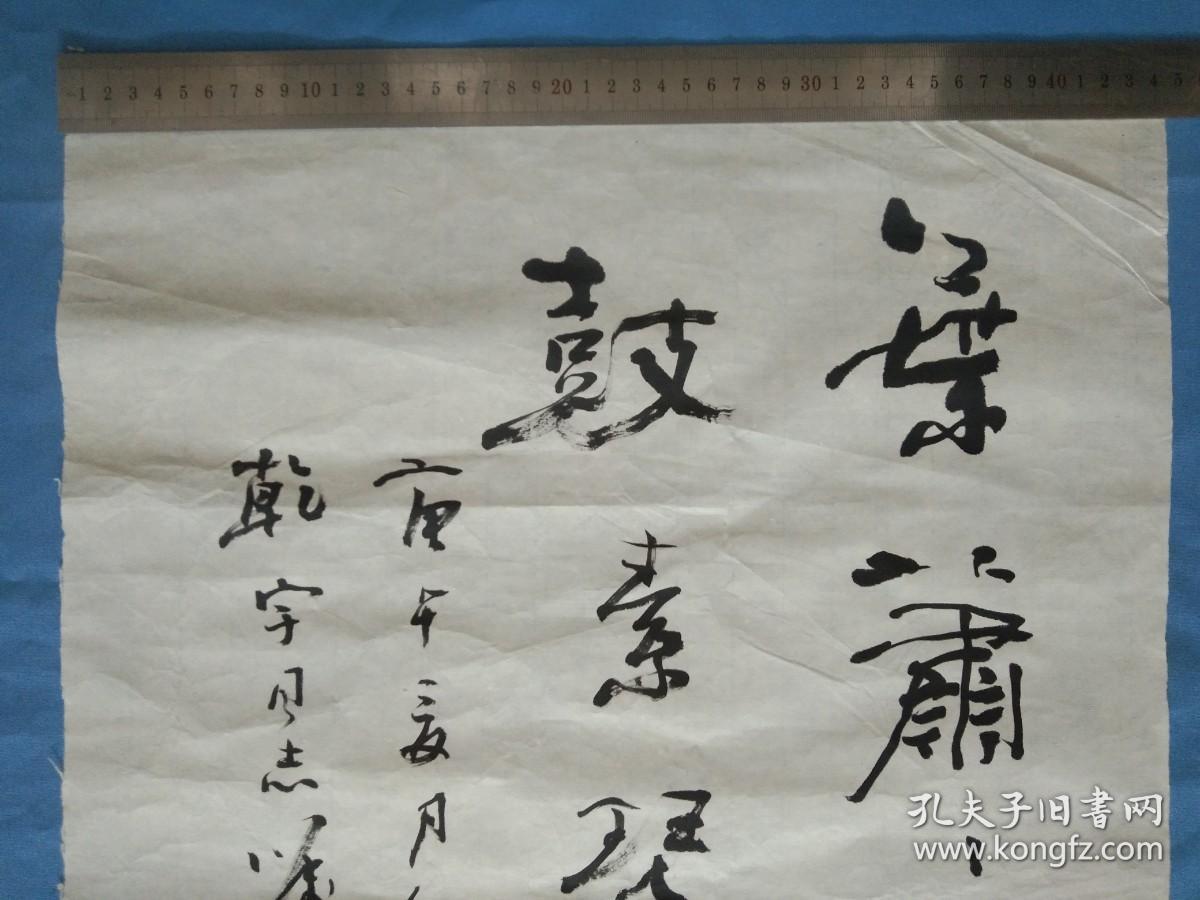 1 2 3 4 5 6 7 8 9 10 1 2 3 4 5 6 7 8 9 20 1 2 3 4 5 6 7 8 9 30 1 2 3 4 5 6 7 8 9 40 1 2 3 4 5
葉蕭
鼓素琴
庚午夏月
乾宇同志属
孔夫子旧書网
www.kongfz.com